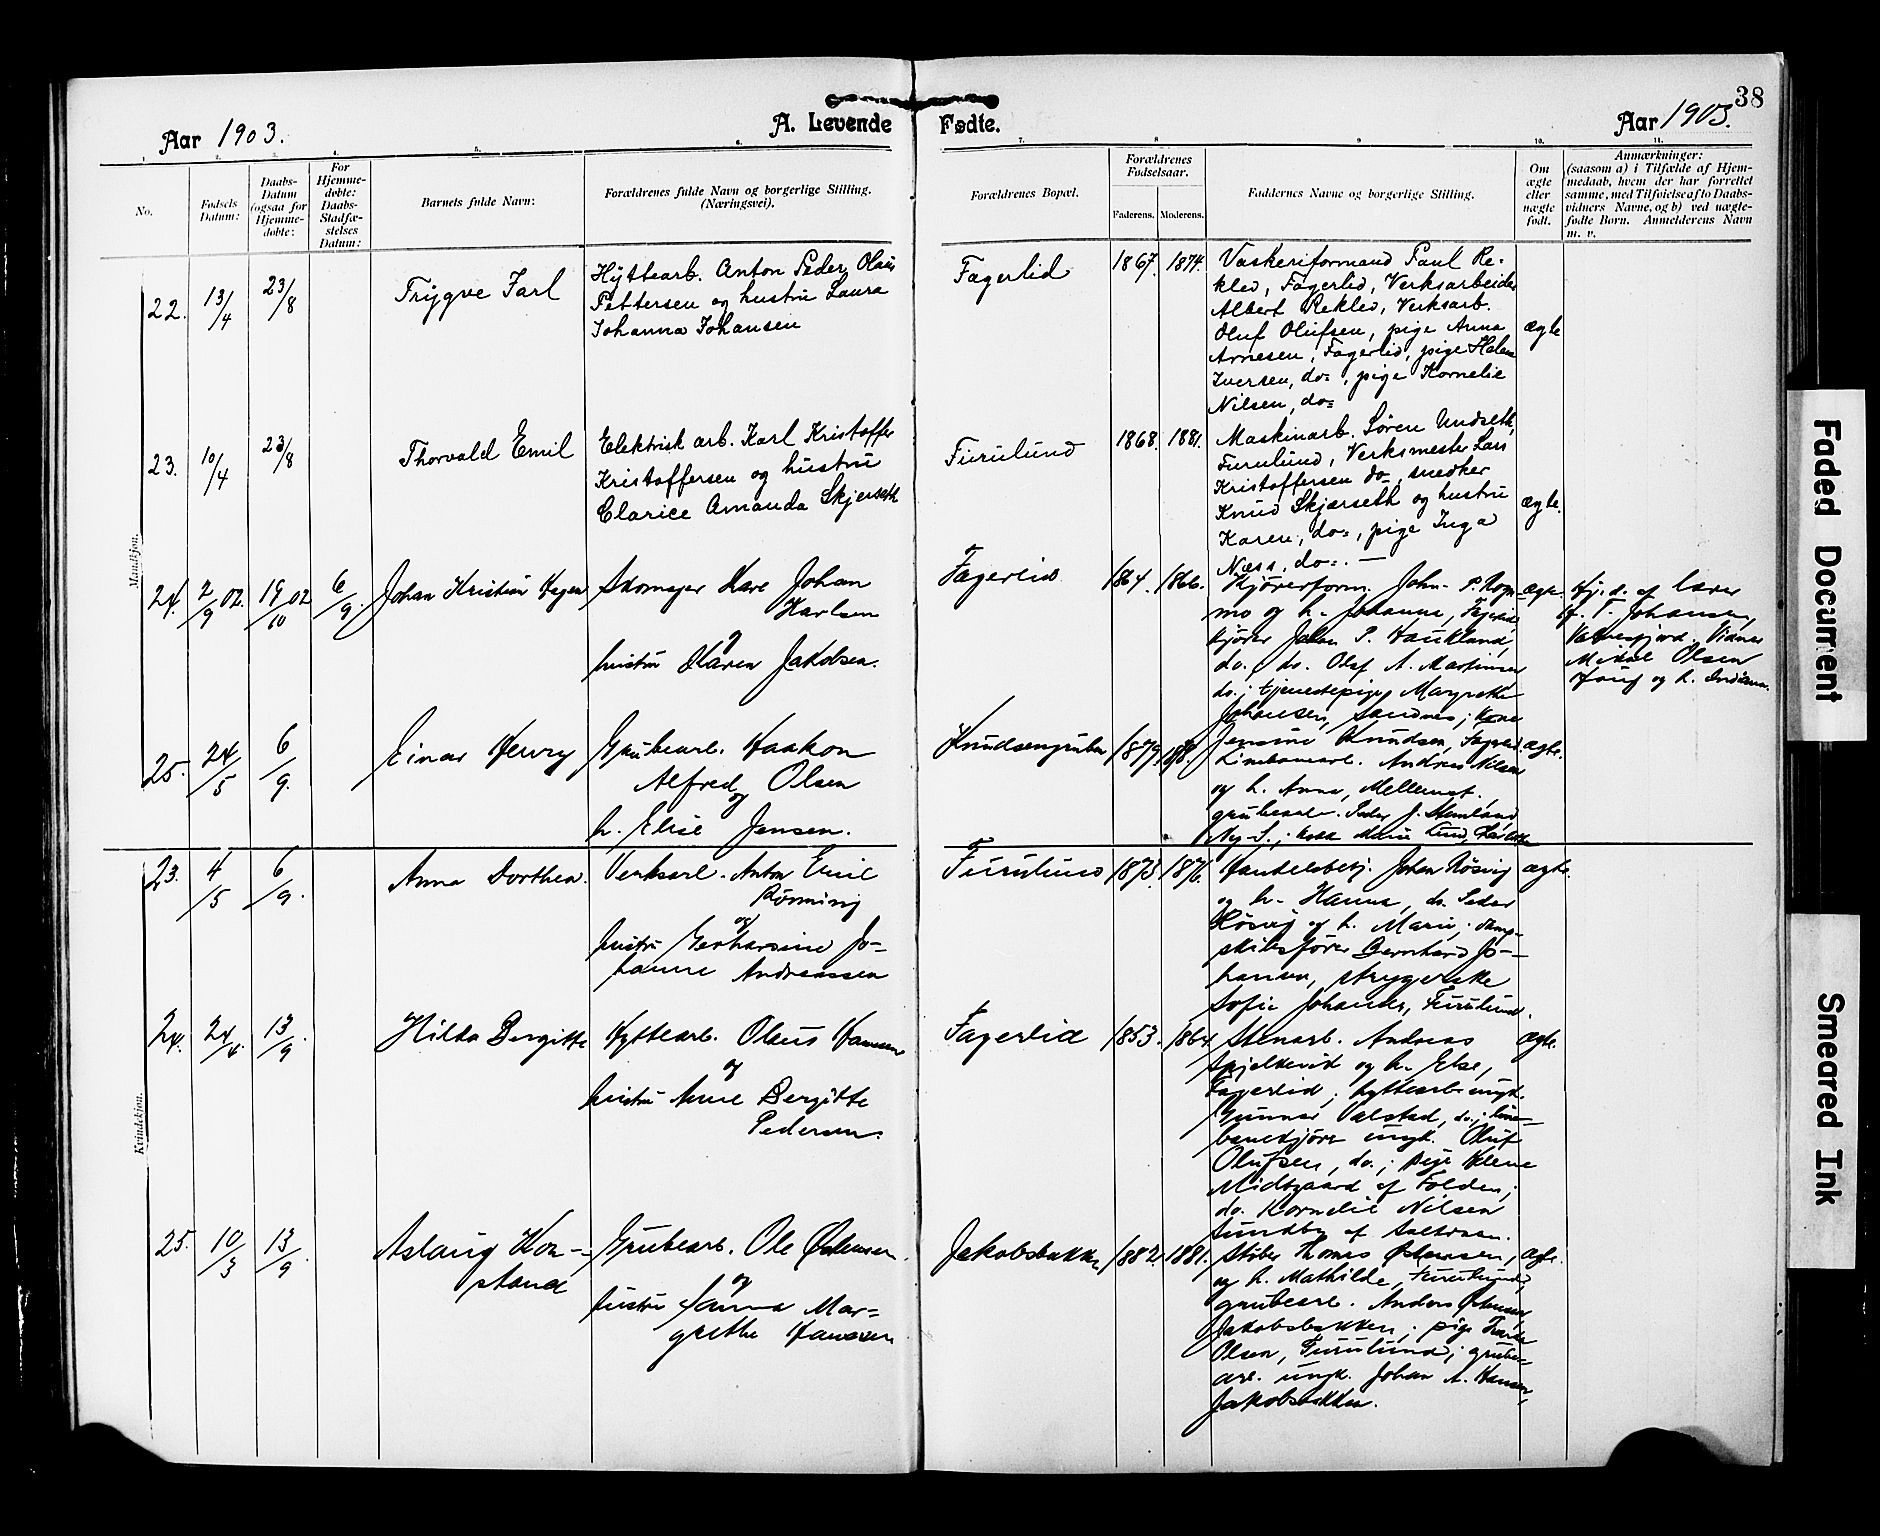 38
Aar 1903.
A. Levende Fødte.
Aar 1903.
1. 2. 3. 4. 5. 6. 7. 8 9 10. 11.
No.
Fødsels Datum:
Daabs-Datum (ogsaa for Hjemme-døbte:
For Hjemme-døbte: Daabs-Stadfæ-stelses Datum:
Barnets fulde Navn:
Forældrenes fulde Navn og borgerlige Stilling. (Næringsvei).
Forældrenes Bopæl.
Forældrenes Fødselsaar.
Faderens. Moderens.
Faddernes Navne og borgerlige Stilling.
Om ægte eller uægte født.
Anmærkninger:
(saasom a) i Tilfælde af Hjem-
medaab, hvem der har forrettet
samme, med Tilføielse af to Daabs-
vidners Navne, og b) ved uægte-
fødte Børn. Anmelderens Navn
m. v.
Mandkjøn.
22. 13/4 23/8
Trygve Jarl
Hyttearb. Anton Peder Olaus
Pettersen og hustru Laura
Johanna Johansen
Fagerlid
1867. 1874.
Vaskeriformand Paul Re-
kled, Fagerlid, Verksarbeider
Albert Rekled, Verksarb.
Oluf Olufsen, pige Anna
Arnesen, Fagerlid, pige Helene
Iversen, do=, pige Kornelie
Nilsen, do=
ægte
23. 10/4 23/8
Thorvald Emil
Elektrisk arb. Karl Kristoffer
Kristoffersen og hustru
Clarice Amanda Skjerseth
Furulund
1868. 1881.
Maskinarb. Søren Undseth,
Furulund, Verksmester Lars
Kristoffersen do=, snedker
Knud Skjærseth og hustru
Karen, do=, pige Inga
Næss, do=. —
ægte.
24. 2/9 02. 19/10 02 6/9.
Johan Kristian Hagen
Skomager Kare Johan
Karlsen
og
hustru Maren Jakobsen.
Fagerlid
1864. 1866.
Kjørerform. John P. Rog-
mo og h. Johanna,
kjører Johan P. Haukland,
do. do. Olaf A. Martinsen
do.; tjenestepige Margrethe
Johansen, Sandnes; kone
Jensine Knudsen,
ægte.
Hj. d. af lærer
T. Johansen,
Vidner
Mikal Olsen
og h.
25. 24/5 6/9.
Einar Henry
Grubearb. Haakon
Alfred Olsen
og
h. Elise Jensen.
Knudsengruben
1879.
Linebanearb. Andreas Nilsen
og h. Anna,
grubearb. Peder J.
ægte.
Kvindekjøn.
23. 4/5 6/9.
Anna Dorthea.
Verksarb. Anton Emil
Rønning
og
hustru Gerharsine Jo-
hanne Andreassen
Furulund
1873. 1876.
Handelsbetj. Johan Røsvig
og h. Hanna, do. Peder
Røsvig og h. Marie; damp-
skibsfører Bernhard Jo-
hansen, strygerske
Sofie Johansen, Furulund.
ægte.
24. 24/4. 13/9.
Hilda Bergitte
Hyttearb. Olaus Hansen
og
hustru Anne Bergitte
Pedersen.
Fagerlid
1853. 1864
Stenarb. Andreas
Spjeldevid og h. Else,
Fagerlid; hyttearb. ungk.
Gunnar Valstad, do.; line-
banekjører ungk. Oluf
Olufsen, do.; pige Helene
Midtgaard af Folden;
do. Kornelie Nilsen
Sundby af Saltdalen.
ægte.
25. 10/3 13/9.
Aslaug Kon-
stanse
Grubearb. Ole Østensen.
og
hustru Sanna Mar-
grethe Hansen
Jakobsbakken
1882. 1881.
Støber Thomas Østensen,
og h. Mathilde, Furulund;
grubearb. Anders Østensen,
Jakobsbakken; pige
Olsen, Furulund; grube-
arb. ungk. Johan A. Hansen,
Jakobsbakken.
ægte.
Faded Document
Smeared Ink